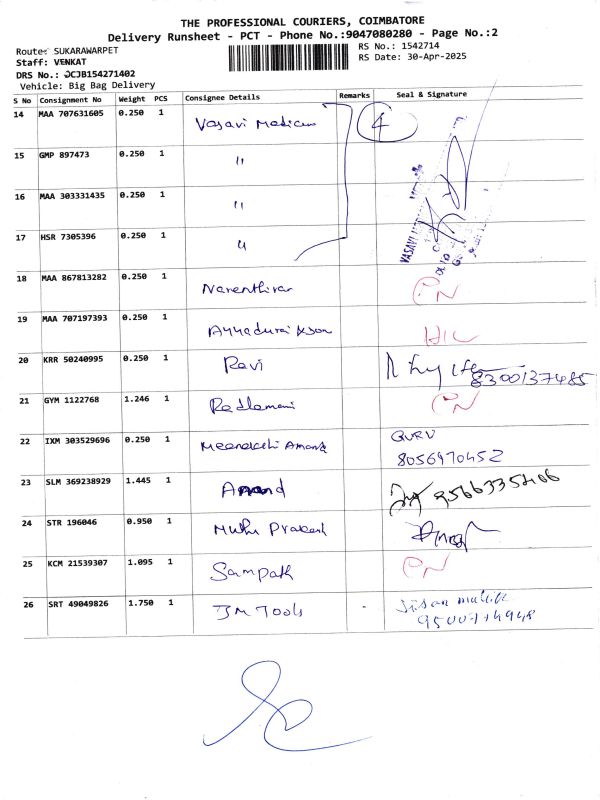 THE PROFESSIONAL COURIERS, COIMBATORE
Delivery Runsheet - PCT - Phone No.:9047080280 - Page No.:2
Route: SUKARAWARPET
RS No.: 1542714
Staff: VENKAT
RS Date: 30-Apr-2025
DRS No.: DCJB154271402
Vehicle: Big Bag Delivery
S No Consignment No Weight PCS Consignee Details Remarks Seal & Signature
14 MAA 707631605 0.250 1 Vasavi Medicam 4
15 GMP 897473 0.250 1 "
16 MAA 303331435 0.250 1 "
17 HSR 7305396 0.250 1 "
VASAVI
18 MAA 867813282 0.250 1 Narenthiran PN
19 MAA 707197393 0.250 1 Ayyadurai &son
20 KRR 50240995 0.250 1 Ravi 8300137485
21 GYM 1122768 1.246 1 PN
22 IXM 303529696 0.250 1 GURU
8056970452
23 SLM 369238929 1.445 1 Anand 9566335406
24 STR 196046 0.950 1 Muthu Prakash
25 KCM 21539307 1.095 1 Sampath PN
26 SRT 49049826 1.750 1 JM Tools